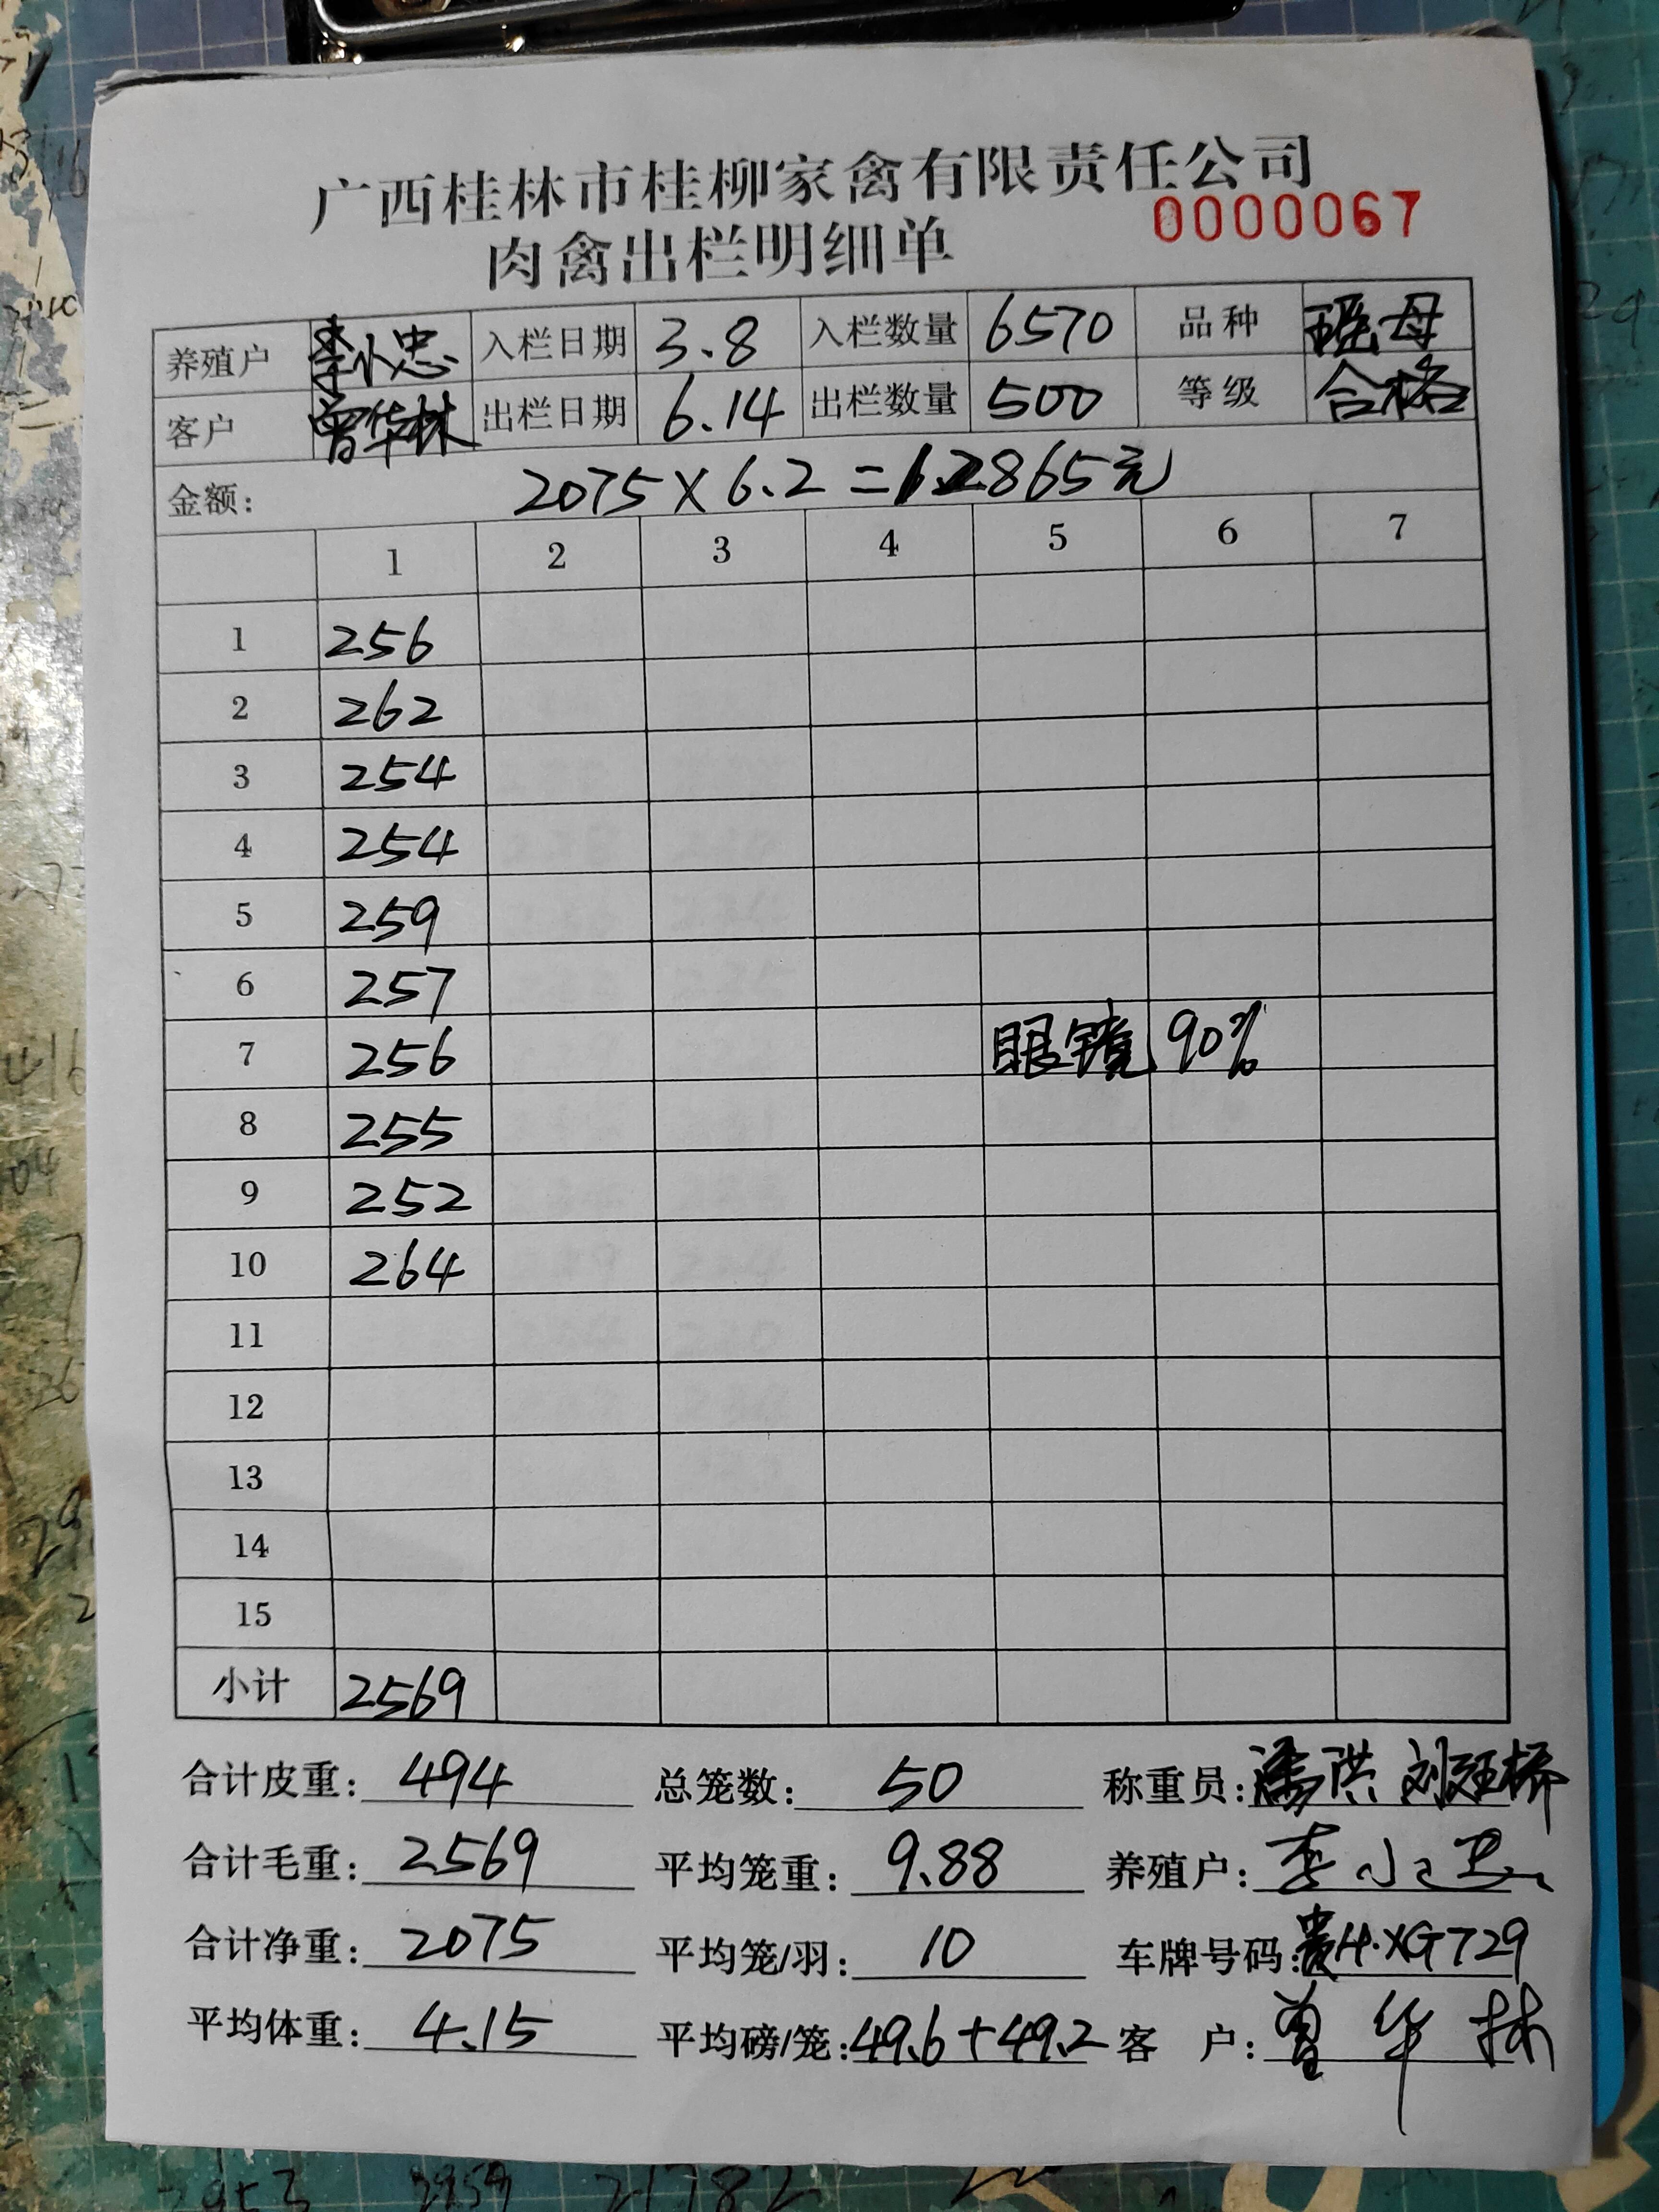 广西桂林市桂柳家禽有限责任公司
0000067
肉禽出栏明细单
养殖户 李小忠 入栏日期 3.8 入栏数量 6570 品种 班母
客户 曾华林 出栏日期 6.14 出栏数量 500 等级 合格
金额: 2075×6.2=12865元
1 2 3 4 5 6 7
1 256
2 262
3 254
4 254
5 259
6 257
7 256 眼镜 90%
8 255
9 252
10 264
11
12
13
14
15
小计 2569
合计皮重: 494 总笼数: 50 称重员: 潘洪
合计毛重: 2569 平均笼重: 9.88 养殖户: 李小
合计净重: 2075 平均笼/羽: 10 车牌号码: 贵H·XG729
平均体重: 4.15 平均磅/笼: 49.6+49.2 客户: 曾华林